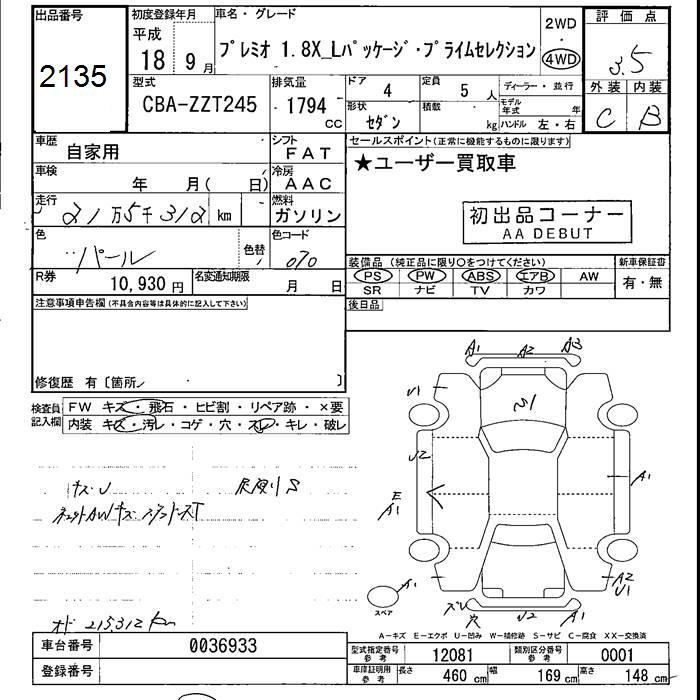 出品番号
2135
初度登録年月
平成
18 9月
車名・グレード
プレミオ 1.8X_Lパッケージ・プライムセレクション
2WD
・
4WD
評価点
3.5
外装 内装
C B
型式
CBA-ZZT245
排気量
1794
CC
ドア 4
定員 5 人
ディーラー・並行
形状
セダン
積載 kg
モデル年式 年
ハンドル 左・右
車歴
自家用
シフト
FAT
セールスポイント(正常に機能するものに限ります)
★ユーザー買取車
車検
年 月( 日)
冷房
AAC
走行
21万5千312 km
燃料
ガソリン
初出品コーナー
AA DEBUT
色
パール
色替
色コード
070
R券
10,930円
名変通知期限
月 日
装備品(純正品に限り〇をつけてください)
PS PW ABS エアB AW
SR ナビ TV カワ
新車保証書
有・無
注意事項申告欄(不具合内容等は具体的に記入して下さい)
後日品
修復歴 有〔箇所 〕
検査員記入欄
FW キズ・飛石・ヒビ割・リペア跡・×要
内装 キズ・汚レ・コゲ・穴・スレ・キレ・破レ
A1 A2 A3
U1
U2
E
A1
A1
A1
A2
U1
U2 A1
穴
スペア
オド 215312 km
A-キズ E-エクボ U-凹み W-補修跡 S-サビ C-腐食 XX-交換済
車台番号
0036933
登録番号
型式指定番号 参考
12081
類別区分番号 参考
0001
車庫証明用 参考
長さ 460 cm 幅 169 cm 高さ 148 cm